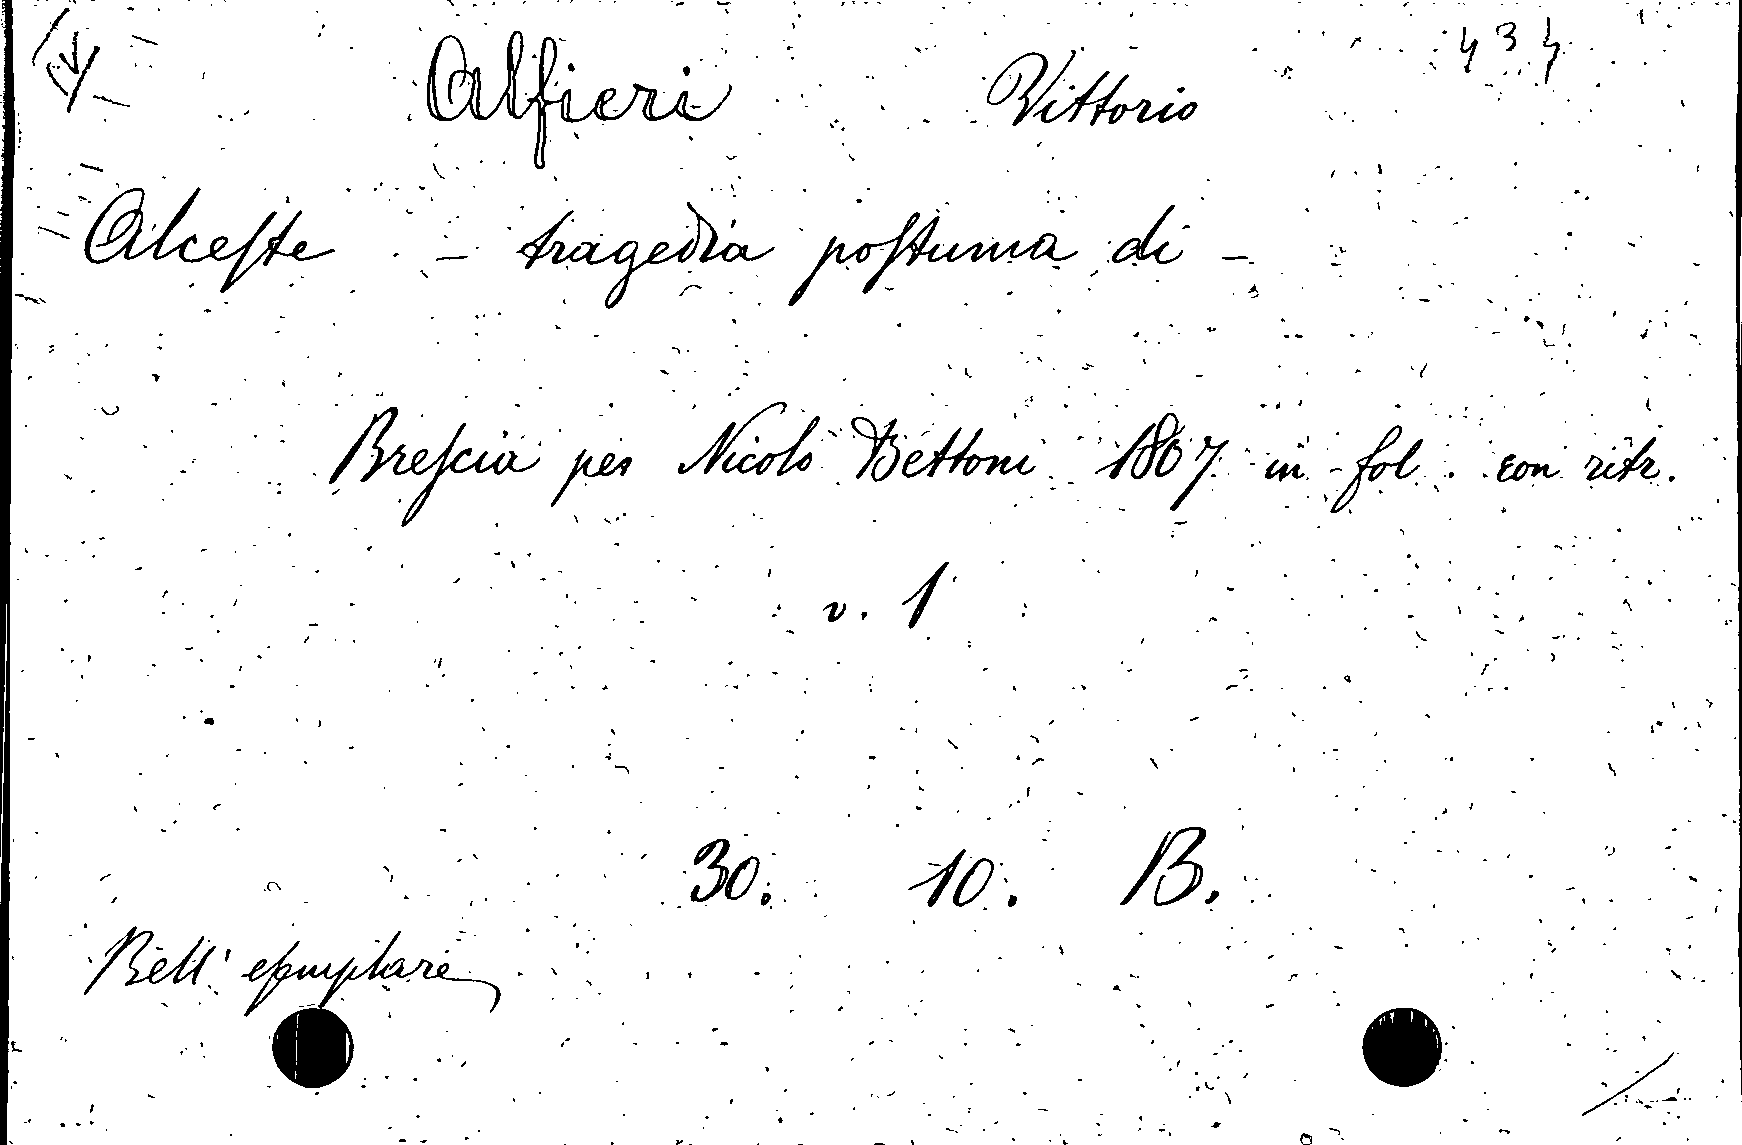 434
Alfieri Vittorio
Alceste – tragedia postuma di –
Brescia per Nicolo Bettoni 1807 in fol. con ritr.
v. 1
30. 10. B.
Bell' esemplare